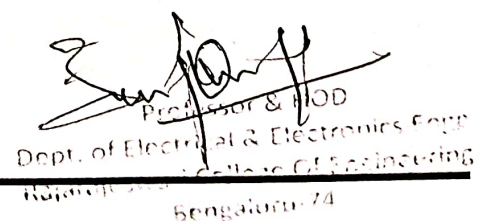 Professor & HOD
Dept. of Electrical & Electronics Engg
College Of Engineering
Bengaluru-74